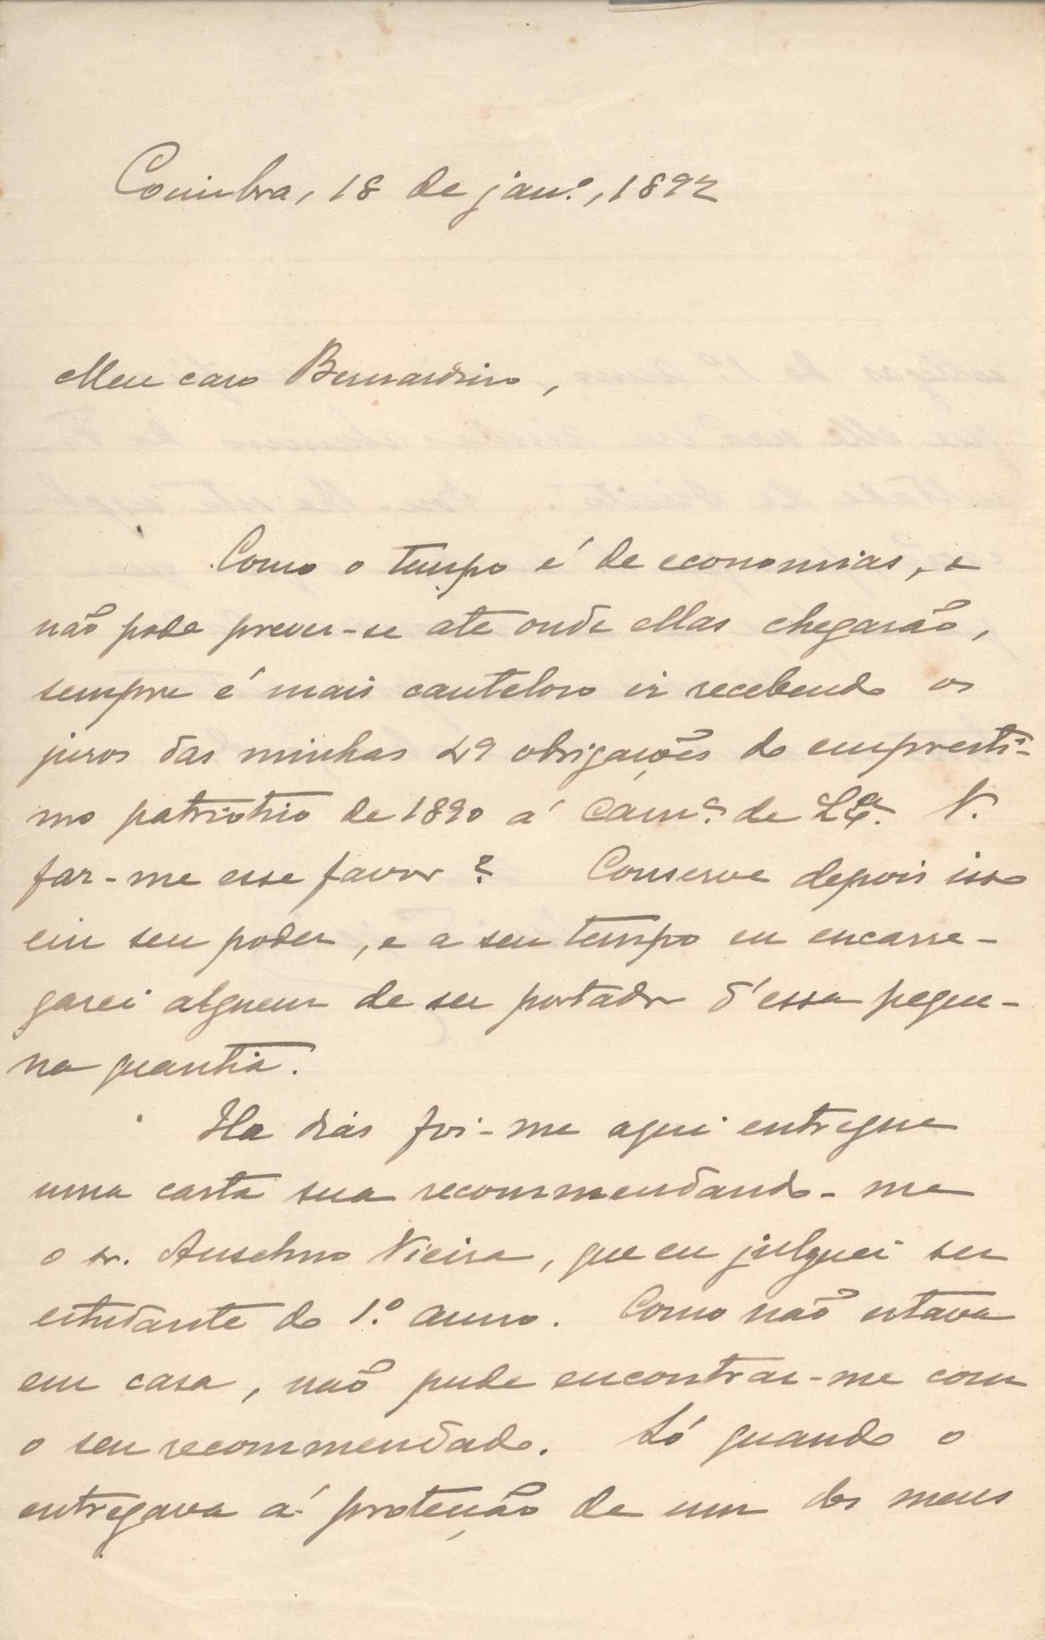 Coimbra, 18 de jan.º, 1892
Meu caro Bernardino,
Como o tempo é de economias, e
não pode prever-se ate onde ellas chegarão,
sempre é mais cauteloso ir recebendo os
juros das minhas 49 obrigações do empresti-
mo patriotico de 1890 á Cam.ª de V.
far-me esse favor? Conserve depois isso
em seu poder, e a seu tempo eu encarre-
garei alguem de ser portador d'essa peque-
na quantia.
Ha dias foi-me aqui entregue
uma carta sua recommendando-me
o sr. Anselmo Vieira, que eu julguei ser
estudante do 1.º anno. Como não estava
em casa, não pude encontrar-me com
o seu recommendado. Só quando o
entregava á proteção de um dos meus